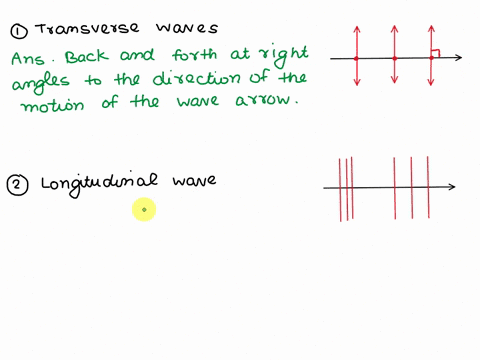 ① Transverse waves
Ans. Back and forth at right
angles to the direction of the
motion of the wave arrow.
② Longitudinal wave